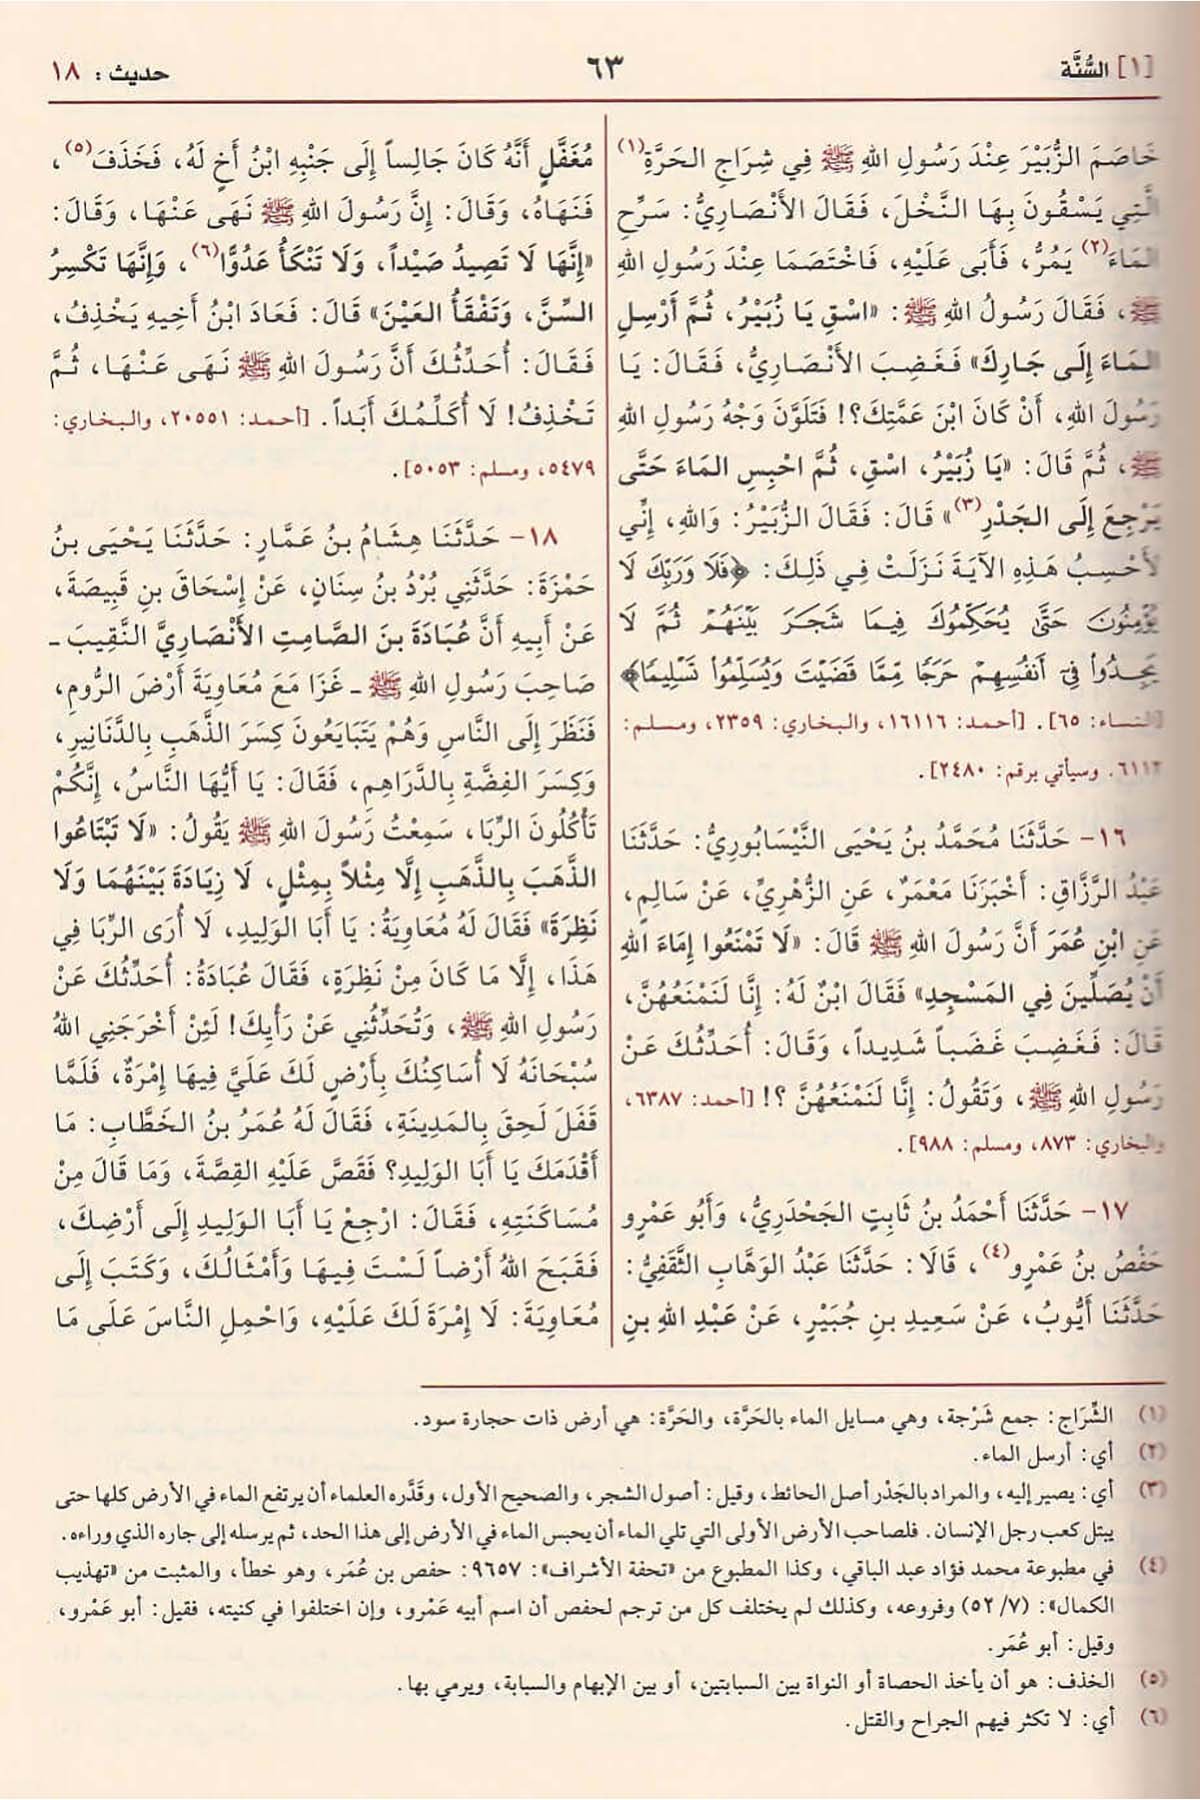 [١] السُّنَّة
٦٣
حديث : ١٨
خَاصَمَ الزُّبَيْرَ عِنْدَ رَسُولِ اللهِ ﷺ فِي شِرَاجِ الحَرَّةِ(١)
الَّتِي يَسْقُونَ بِهَا النَّخْلَ، فَقَالَ الأَنْصَارِيُّ: سَرِّحِ
المَاءَ(٢) يَمُرُّ، فَأَبَى عَلَيْهِ، فَاخْتَصَمَا عِنْدَ رَسُولِ اللهِ
ﷺ، فَقَالَ رَسُولُ اللهِ ﷺ: «اسْقِ يَا زُبَيْرُ، ثُمَّ أَرْسِلِ
المَاءَ إِلَى جَارِكَ» فَغَضِبَ الأَنْصَارِيُّ، فَقَالَ: يَا
رَسُولَ اللهِ، أَنْ كَانَ ابْنَ عَمَّتِكَ؟! فَتَلَوَّنَ وَجْهُ رَسُولِ اللهِ
ﷺ، ثُمَّ قَالَ: «يَا زُبَيْرُ، اسْقِ، ثُمَّ احْبِسِ المَاءَ حَتَّى
يَرْجِعَ إِلَى الجَدْرِ(٣)» قَالَ: فَقَالَ الزُّبَيْرُ: وَاللهِ، إِنِّي
لَأَحْسِبُ هَذِهِ الآيَةَ نَزَلَتْ فِي ذَلِكَ: ﴿فَلَا وَرَبِّكَ لَا
يُؤْمِنُونَ حَتَّىٰ يُحَكِّمُوكَ فِيمَا شَجَرَ بَيْنَهُمْ ثُمَّ لَا
يَجِدُوا۟ فِىٓ أَنفُسِهِمْ حَرَجًا مِّمَّا قَضَيْتَ وَيُسَلِّمُوا۟ تَسْلِيمًا﴾
[النساء: ٦٥]. [أحمد: ١٦١١٦، والبخاري: ٢٣٥٩، ومسلم:
٦١١٢. وسيأتي برقم: ٢٤٨٠].
١٦- حَدَّثَنَا مُحَمَّدُ بنُ يَحْيَى النَّيْسَابُورِيُّ: حَدَّثَنَا
عَبْدُ الرَّزَّاقِ: أَخْبَرَنَا مَعْمَرٌ، عَنِ الزُّهْرِيِّ، عَنْ سَالِمٍ،
عَنِ ابْنِ عُمَرَ أَنَّ رَسُولَ اللهِ ﷺ قَالَ: «لَا تَمْنَعُوا إِمَاءَ اللهِ
أَنْ يُصَلِّينَ فِي المَسْجِدِ» فَقَالَ ابْنٌ لَهُ: إِنَّا لَنَمْنَعُهُنَّ،
قَالَ: فَغَضِبَ غَضَباً شَدِيداً، وَقَالَ: أُحَدِّثُكَ عَنْ
رَسُولِ اللهِ ﷺ، وَتَقُولُ: إِنَّا لَنَمْنَعُهُنَّ ؟! [أحمد: ٦٣٨٧،
والبخاري: ٨٧٣، ومسلم: ٩٨٨].
١٧- حَدَّثَنَا أَحْمَدُ بنُ ثَابِتٍ الجَحْدَرِيُّ، وَأَبُو عَمْرٍو
حَفْصُ بنُ عَمْرٍو(٤)، قَالَا: حَدَّثَنَا عَبْدُ الوَهَّابِ الثَّقَفِيُّ:
حَدَّثَنَا أَيُّوبُ، عَنْ سَعِيدِ بنِ جُبَيْرٍ، عَنْ عَبْدِ اللهِ بنِ
مُغَفَّلٍ أَنَّهُ كَانَ جَالِساً إِلَى جَنْبِهِ ابْنُ أَخٍ لَهُ، فَخَذَفَ(٥)،
فَنَهَاهُ، وَقَالَ: إِنَّ رَسُولَ اللهِ ﷺ نَهَى عَنْهَا، وَقَالَ:
«إِنَّهَا لَا تَصِيدُ صَيْداً، وَلَا تَنْكَأُ عَدُوًّا(٦)، وَإِنَّهَا تَكْسِرُ
السِّنَّ، وَتَفْقَأُ العَيْنَ» قَالَ: فَعَادَ ابْنُ أَخِيهِ يَخْذِفُ،
فَقَالَ: أُحَدِّثُكَ أَنَّ رَسُولَ اللهِ ﷺ نَهَى عَنْهَا، ثُمَّ
تَخْذِفُ! لَا أُكَلِّمُكَ أَبَداً. [أحمد: ٢٠٥٥١، والبخاري:
٥٤٧٩، ومسلم: ٥٠٥٣].
١٨- حَدَّثَنَا هِشَامُ بنُ عَمَّارٍ: حَدَّثَنَا يَحْيَى بنُ
حَمْزَةَ: حَدَّثَنِي بُرْدُ بنُ سِنَانٍ، عَنْ إِسْحَاقَ بنِ قَبِيصَةَ،
عَنْ أَبِيهِ أَنَّ عُبَادَةَ بنَ الصَّامِتِ الأَنْصَارِيَّ النَّقِيبَ ـ
صَاحِبَ رَسُولِ اللهِ ﷺ ـ غَزَا مَعَ مُعَاوِيَةَ أَرْضَ الرُّومِ،
فَنَظَرَ إِلَى النَّاسِ وَهُمْ يَتَبَايَعُونَ كِسَرَ الذَّهَبِ بِالدَّنَانِيرِ،
وَكِسَرَ الفِضَّةِ بِالدَّرَاهِمِ، فَقَالَ: يَا أَيُّهَا النَّاسُ، إِنَّكُمْ
تَأْكُلُونَ الرِّبَا، سَمِعْتُ رَسُولَ اللهِ ﷺ يَقُولُ: «لَا تَبْتَاعُوا
الذَّهَبَ بِالذَّهَبِ إِلَّا مِثْلاً بِمِثْلٍ، لَا زِيَادَةَ بَيْنَهُمَا وَلَا
نَظِرَةَ» فَقَالَ لَهُ مُعَاوِيَةُ: يَا أَبَا الوَلِيدِ، لَا أُرَى الرِّبَا فِي
هَذَا، إِلَّا مَا كَانَ مِنْ نَظِرَةٍ، فَقَالَ عُبَادَةُ: أُحَدِّثُكَ عَنْ
رَسُولِ اللهِ ﷺ، وَتُحَدِّثُنِي عَنْ رَأْيِكَ! لَئِنْ أَخْرَجَنِي اللهُ
سُبْحَانَهُ لَا أُسَاكِنُكَ بِأَرْضٍ لَكَ عَلَيَّ فِيهَا إِمْرَةٌ، فَلَمَّا
قَفَلَ لَحِقَ بِالمَدِينَةِ، فَقَالَ لَهُ عُمَرُ بنُ الخَطَّابِ: مَا
أَقْدَمَكَ يَا أَبَا الوَلِيدِ؟ فَقَصَّ عَلَيْهِ القِصَّةَ، وَمَا قَالَ مِنْ
مُسَاكَنَتِهِ، فَقَالَ: ارْجِعْ يَا أَبَا الوَلِيدِ إِلَى أَرْضِكَ،
فَقَبَحَ اللهُ أَرْضاً لَسْتَ فِيهَا وَأَمْثَالُكَ، وَكَتَبَ إِلَى
مُعَاوِيَةَ: لَا إِمْرَةَ لَكَ عَلَيْهِ، وَاحْمِلِ النَّاسَ عَلَى مَا
(١) الشِّرَاج: جمع شَرْجة، وهي مسايل الماء بالحَرَّة، والحَرَّة: هي أرض ذات حجارة سود.
(٢) أي: أرسل الماء.
(٣) أي: يصير إليه، والمراد بالجَدْر أصل الحائط، وقيل: أصول الشجر، والصحيح الأول، وقَدَّره العلماء أن يرتفع الماء في الأرض كلها حتى
يبتل كعب رجل الإنسان. فلصاحب الأرض الأولى التي تلي الماء أن يحبس الماء في الأرض إلى هذا الحد، ثم يرسله إلى جاره الذي وراءه.
(٤) في مطبوعة محمد فؤاد عبد الباقي، وكذا المطبوع من «تحفة الأشراف»: ٩٦٥٧: حفص بن عُمَر، وهو خطأ، والمثبت من «تهذيب
الكمال»: (٧/ ٥٢) وفروعه، وكذلك لم يختلف كل من ترجم لحفص أن اسم أبيه عَمْرو، وإن اختلفوا في كنيته، فقيل: أبو عَمْرو،
وقيل: أبو عُمَر.
(٥) الخذف: هو أن يأخذ الحصاة أو النواة بين السبابتين، أو بين الإبهام والسبابة، ويرمي بها.
(٦) أي: لا تكثر فيهم الجراح والقتل.